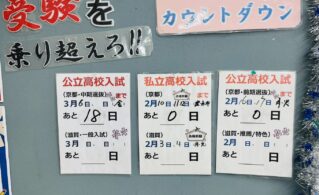 受験を
乗り超えろ!!
カウントダウン
公立高校入試
(京都・中期選抜)まで
3月6日(金)
あと18日
(滋賀・一般入試)
3月 日
あと 日
私立高校入試
(京都)まで
2月10日
あと0日
(滋賀)
2月3日
あと 日
公立高校入試
(京都・前期選抜)まで
2月16・17日
あと0日
(滋賀・推薦/特色)
2月 日
あと 日